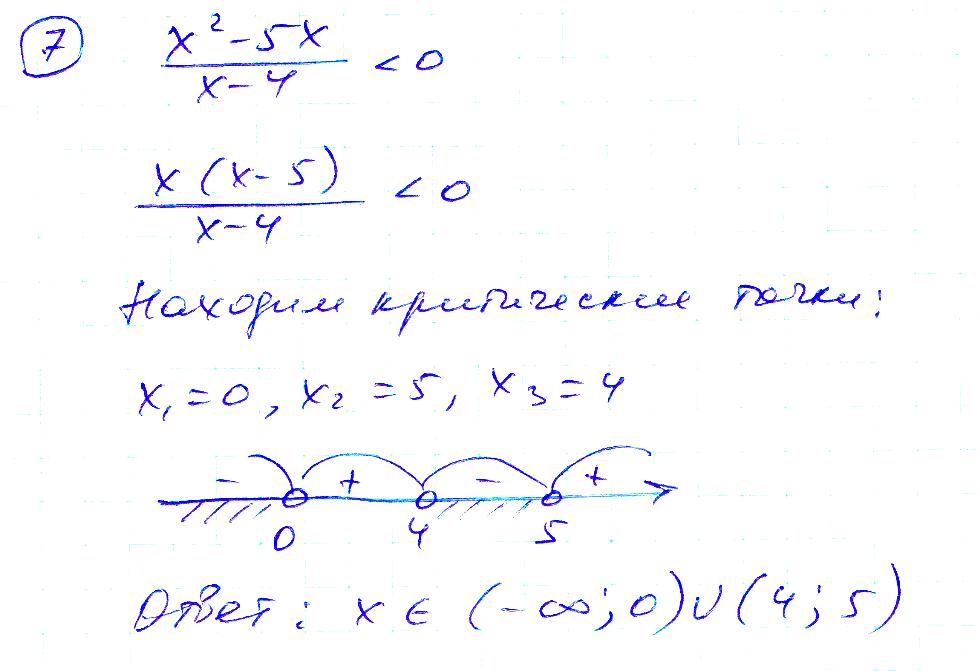 7 x² - 5x / x - 4 < 0
x (x - 5) / x - 4 < 0
Находим критические точки:
x₁ = 0, x₂ = 5, x₃ = 4
- + - +
0 4 5
Ответ: x ∈ (-∞; 0) ∪ (4; 5)